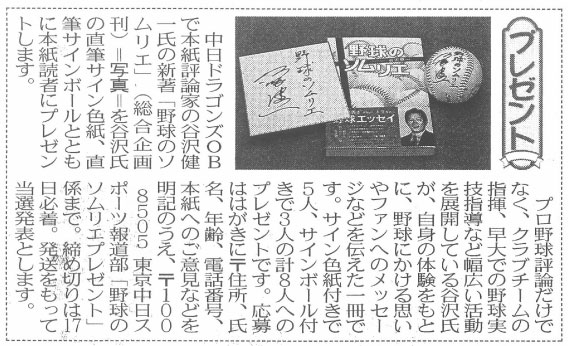 プレゼント
野球のソムリエ
野球の
ソムリエ
野球エッセイ
野球ソムリエ
中日ドラゴンズＯＢ
で本紙評論家の谷沢健
一氏の新著「野球のソ
ムリエ」（総合企画
刊）＝写真＝を谷沢氏
の直筆サイン色紙、直
筆サインボールととも
に本紙読者にプレゼン
トします。
プロ野球評論だけで
なく、クラブチームの
指揮、早大での野球実
技指導など幅広い活動
を展開している谷沢氏
が、自身の体験をもと
に、野球にかける思い
やファンへのメッセー
ジなどを伝えた一冊で
す。サイン色紙付きで
５人、サインボール付
きで３人の計８人への
プレゼントです。応募
ははがきに〒住所、氏
名、年齢、電話番号、
本紙へのご意見などを
明記のうえ、〒１００
８５０５　東京中日ス
ポーツ報道部「野球の
ソムリエプレゼント」
係まで。締め切りは17
日必着。発送をもって
当選発表とします。